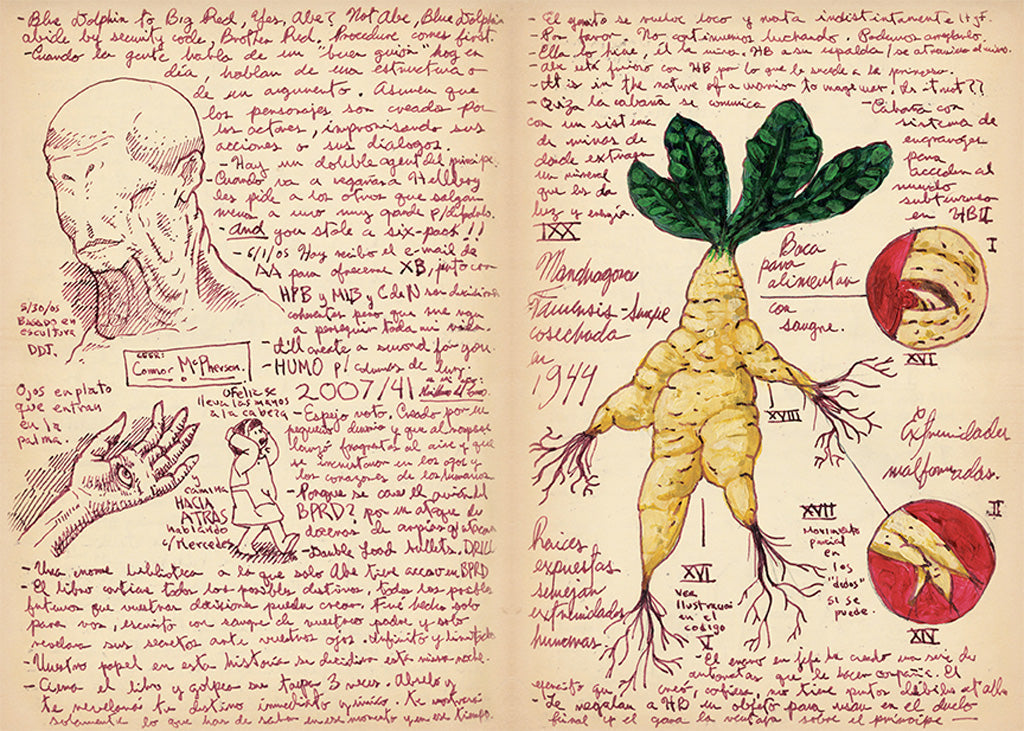 - Blue Dolphin to Big Red, Yes, Abe? Not Abe, Blue Dolphin
abide by security code, Brother Red. Procedure comes first.
- Cuando la gente habla de un "buen guión" hoy en
día, hablan de una estructura o
de un argumento. Asumen que
los personajes son creados por
los actores, improvisando sus
acciones o sus diálogos.
- Hay un doble agent del príncipe.
Cuando va a regañar a Hellboy
les pide a los otros que salgan
menos a uno muy grande p/
- And you stole a six-pack!!
- 6/1/05 Hoy recibo el e-mail de
AA para ofrecerme XB, justo con
HPB y MLB y C de N
pero que me van
a perseguir toda mi vida.
- I'll create a sword for you.
- HUMO p/ columnas de luz.
5/30/05
Basado en
escultura
DDT.
Connor McPherson.
2007/41
Ojos en plato
que entran
en la
palma.
Ofelia se
lleva las manos
a la cabeza
y
camina
HACIA
ATRAS
hablando
c/Mercedes
- Espejo roto. Creado por un
pequeño demonio y que al romperse
lanzó fragmentos al aire y que
se incrustaron en los ojos y
los corazones de los humanos
- Porque se cae el avión del
BPRD? por un ataque de
docenas de arpías
- Double load bullets. DRILL
- Una enorme biblioteca a la que solo Abe tiene acceso en BPRD
- El libro contiene todos los posibles destinos, todos los posibles
futuros que vuestras decisiones puedan crear. Fue hecho solo
para vos, escrito con sangre de vuestro padre y solo
revelara sus secretos ante vuestros ojos. Infinito y limitado
- Vuestro papel en esta historia se decidira esta misma noche.
- Cierra el libro y golpea su tapa 3 veces. Abrelo y
te revelara tu destino inmediato y único. te mostrará
solamente lo que has de saber en ese momento y en ese tiempo.
- El se vuelve loco y mata indistintamente
- Por favor. No continuemos luchando. Podemos arreglarlo.
- Ella lo hiere, él la mira. HB a su espalda
- Abe está furioso con HB por lo que le sucede a la princesa.
- It is in the nature of a warrior to wage war, is it not??
- Quizá la cabaña se comunica
con un sistema
de minas de
donde extraen
un mineral
que les da
luz y energía.
- Cabaña con
sistema de
engranajes
para
acceder al
mundo
subterraneo
en HB II
IXX
Mandragora
Taurensis - Sangre
cosechada
en
1944
Boca
para
alimentar
con
sangre.
I
XVI
XVIII
Extremidades
malformadas.
II
XVII
Movimiento
parcial
en
los
"dedos"
si se
puede.
XIV
Raices
expuestas
semejan
extremidades
humanas.
XVI
ver
Ilustracion
en el
codigo
V
- El enano en jefe ha creado una serie de
autómatas que le hacen compañía. El
ejercito que creó, confiesa, no tiene puntos débiles
- Le regalan a HB un objeto para usar en el duelo
final y el gana la ventaja sobre el principe —